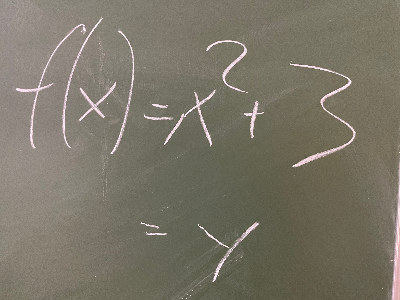 f(x) = x² + 3
= y